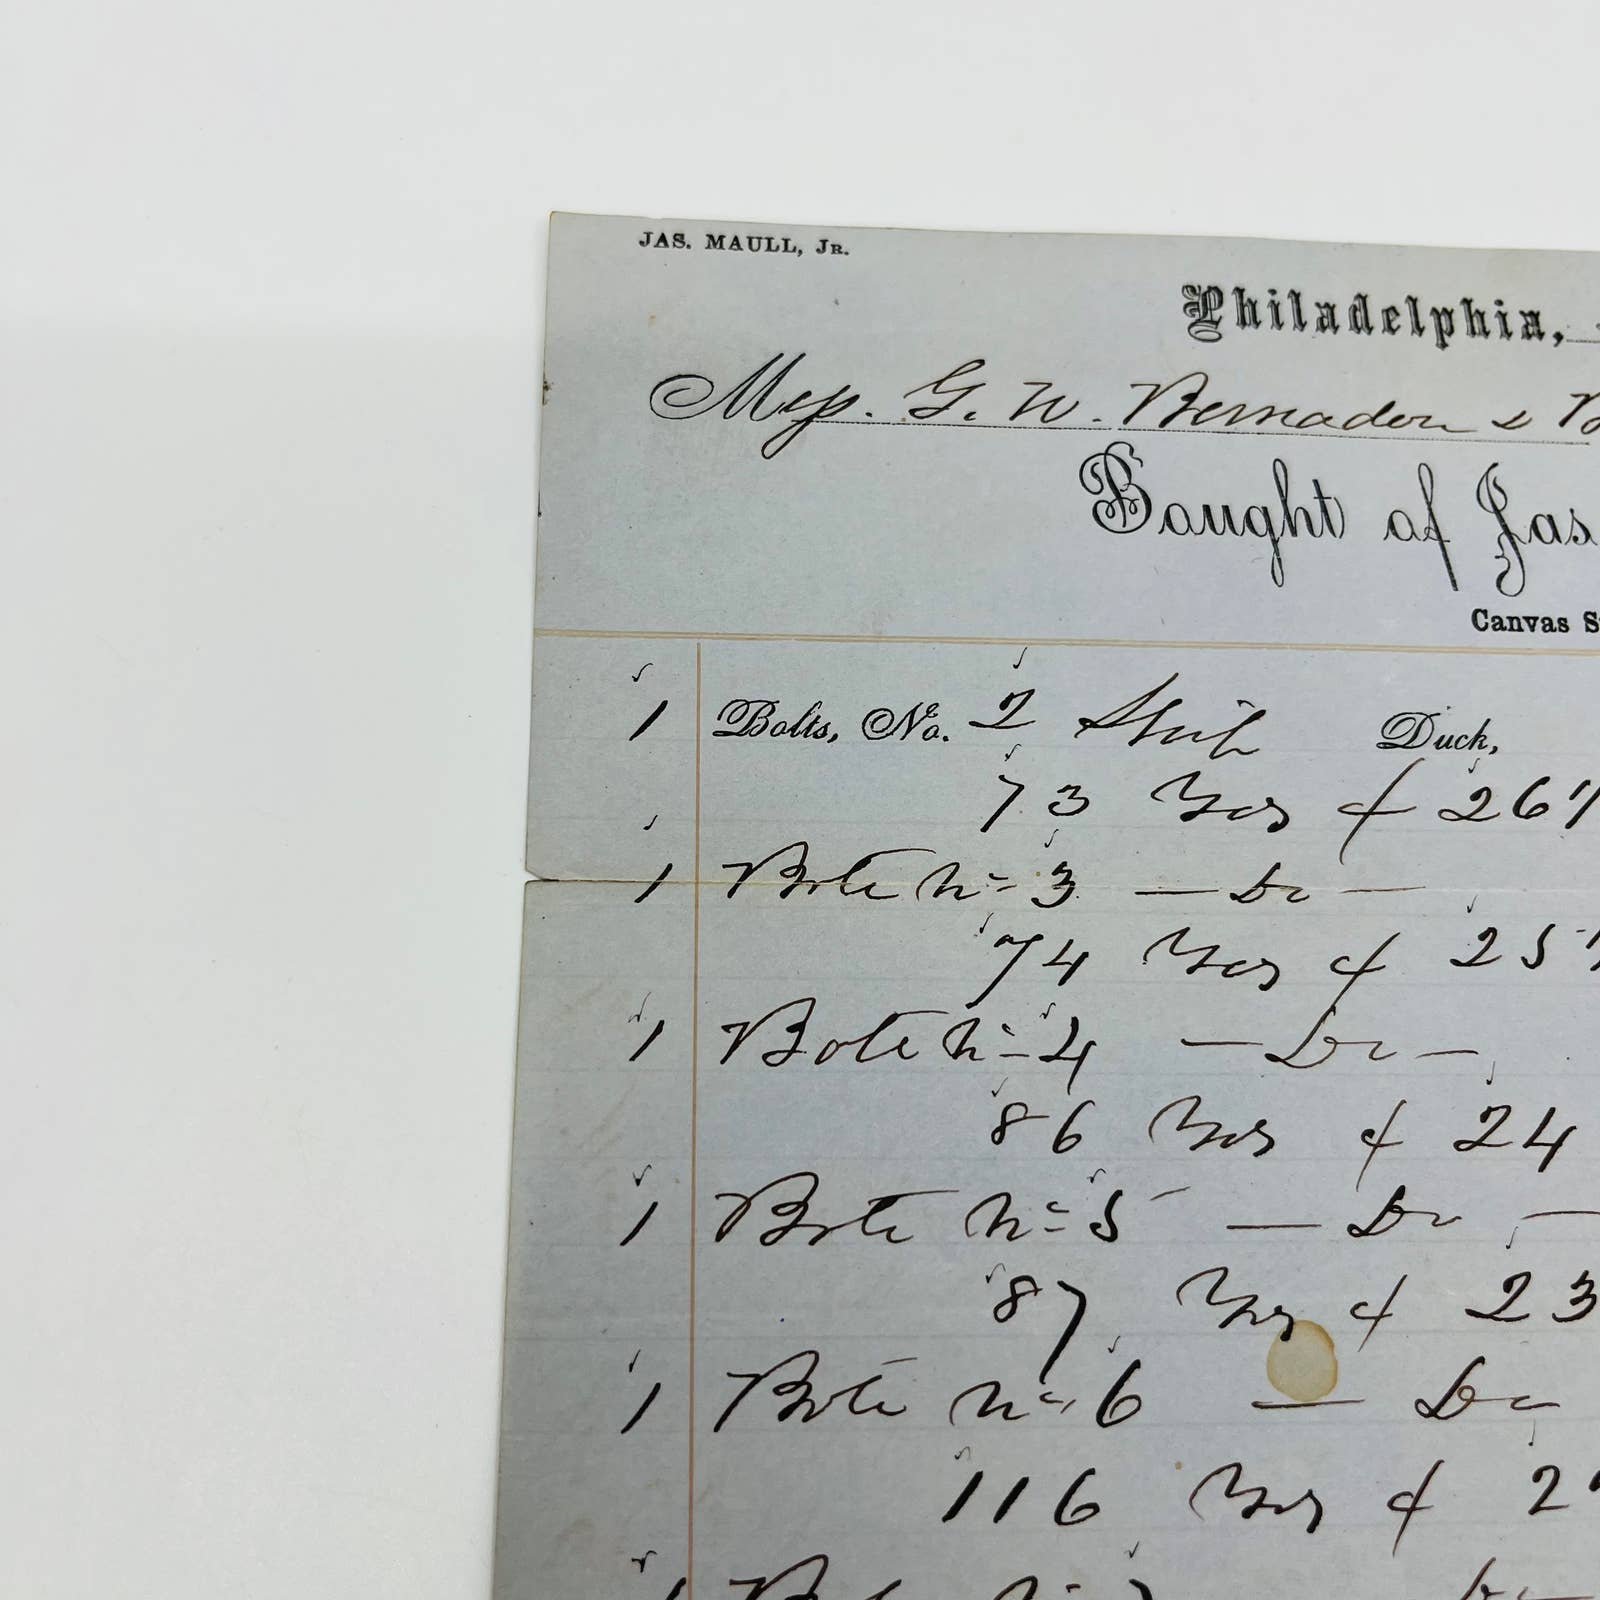 JAS. MAULL, JR.
Philadelphia,
Mess. G. W. Bernadou & B
Bought of Jas
Canvas S
1 Bolts, No. 2 Ship Duck,
73 Yds @ 26
1 Bolt No 3 — Do —
74 Yds @ 25
1 Bolt No 4 — Do —
86 Yds @ 24
1 Bolt No 5 — Do —
87 Yds @ 23
1 Bolt No 6 — Do
116 Yds @ 2
1 Bolt No 7 Do